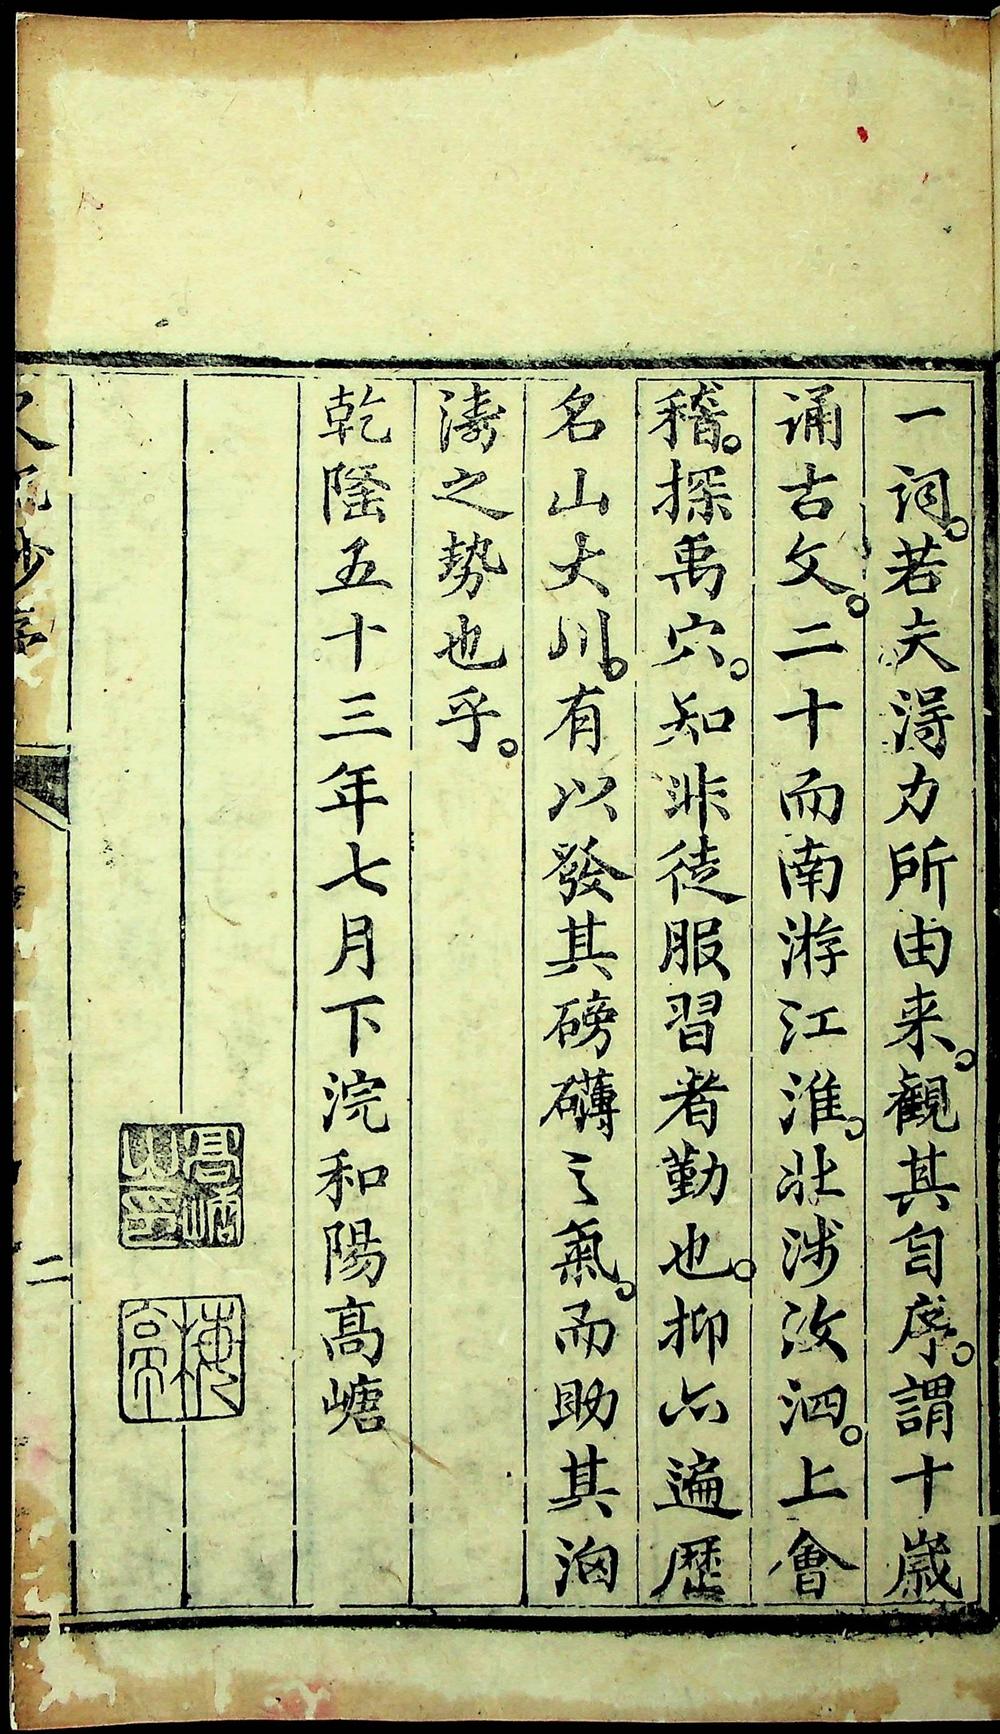 一詞。若夫得力所由来。觀其自序。謂十歲
誦古文。二十而南游江淮。壯涉汶泗。上會
稽。探禹穴。知非徒服習者勤也。抑亦遍歷
名山大川。有以發其磅礴之氣。而助其洶
濤之勢也乎。
乾隆五十三年七月下浣和陽高嵣
高嵣之印
梅亭
鈔序
二